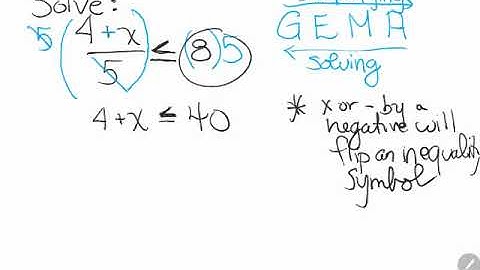 Solve:
5 (4 + x / 5) ≤ (8)5
4 + x ≤ 40
GEMA
solving
* x or - by a
negative will
flip an inequality
symbol